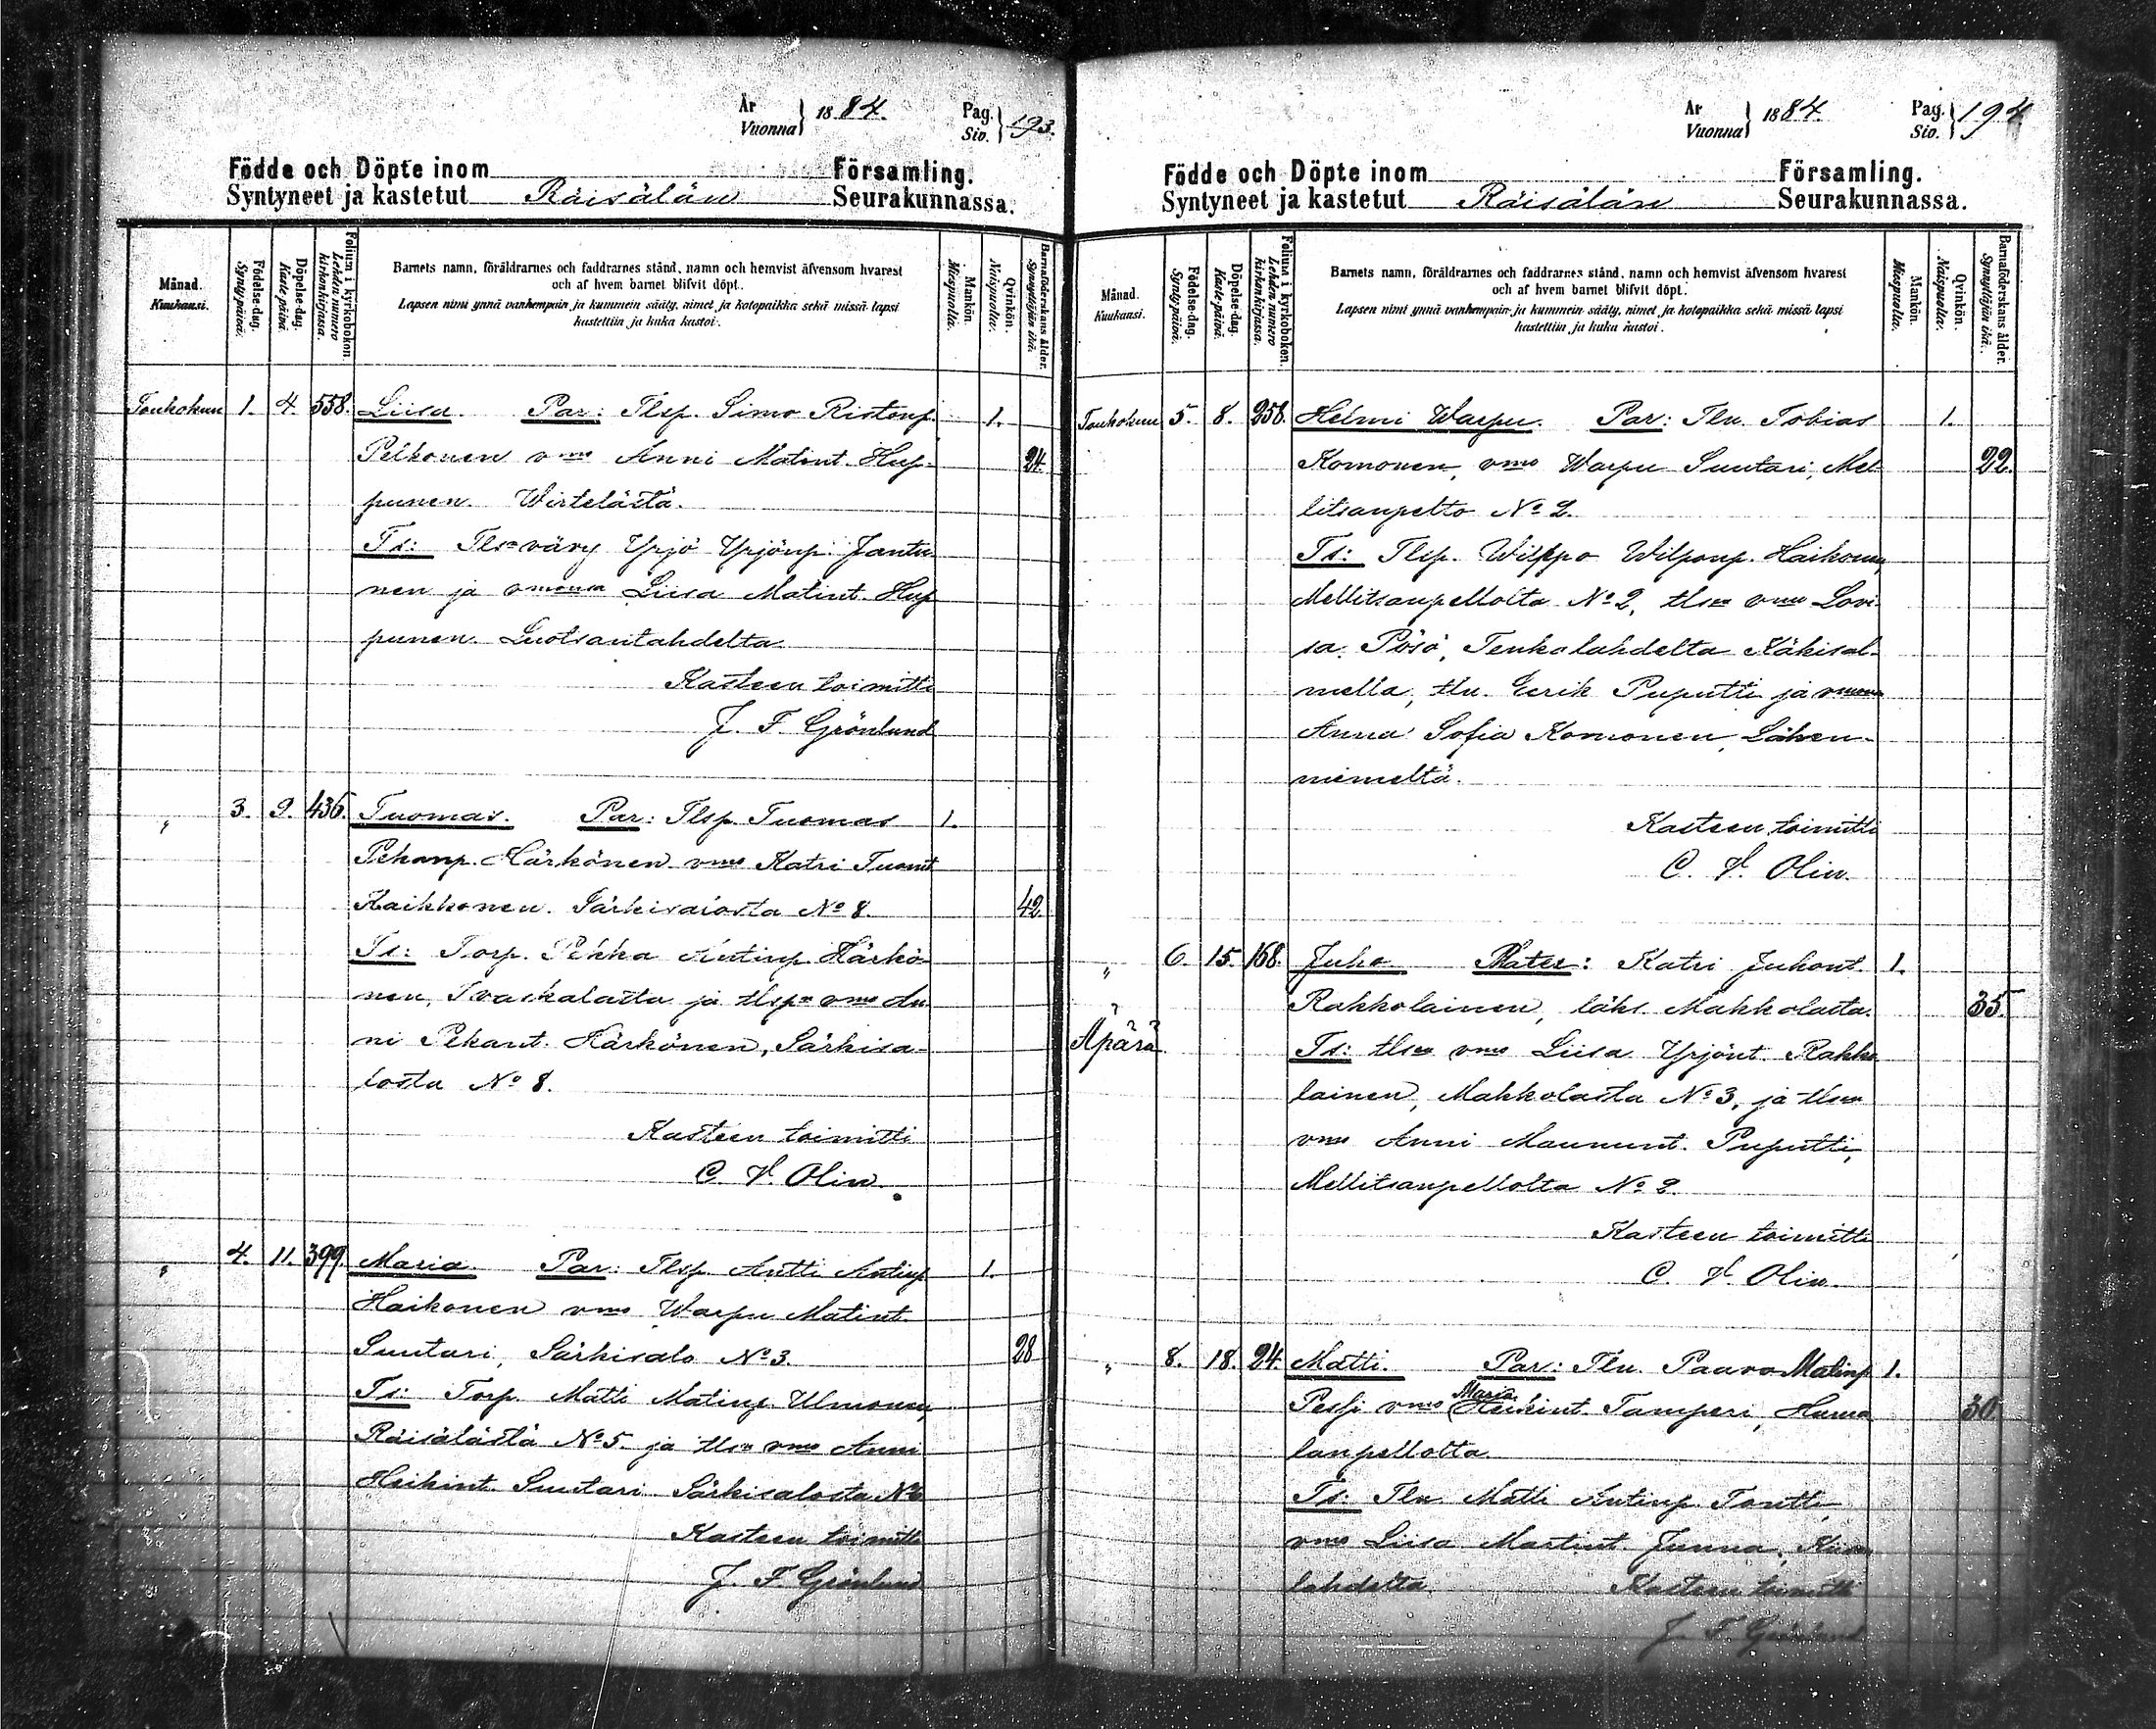 År
Vuonna } 1884.
Pag.
Siv. } 193.
Födde och Döpte inom Församling.
Syntyneet ja kastetut Räisälän Seurakunnassa.
Månad.
Kuukausi.
Födelse-dag.
Syntypäivä.
Döpelse-dag.
Kastepäivä.
Folium i kyrkoboken.
Lehden numero
kirkonkirjassa.
Barnets namn, föräldrarnes och faddrarnes stånd, namn och hemvist äfvensom hvarest
och af hvem barnet blifvit döpt.
Lapsen nimi ynnä vanhempain ja kummein sääty, nimet ja kotopaikka sekä missä lapsi
kastettiin ja kuka kastoi.
Mankön.
Miespuolta.
Qvinkön.
Naispuolta.
Barnaföderskans ålder.
Synnyttäjän ikä.
Toukokuu 1. 4. 558. Liisa. Par: Tlsp. Simo Ristonp. 1.
Pelkonen vmo Anni Matint. Hup- 24.
punen. Wirtelästä.
Ts: Tlsväry Yrjö Yrjönp. Jantu
nen ja vmonsa Liisa Matint. Hup
punen. Luotsantahdelta
Kasteen toimitti
J. F. Grönlund
" 3. 9. 436. Tuomas. Par: Tlsp. Tuomas 1.
Pekanp. Härkönen vmo Katri Tuomt
Kaikkonen. Särkisalosta No 8. 42
Ts: Torp. Pekka Antinp. Härkö-
nen, Ivaskalasta ja tlspn vmo An
ni Pekant. Härkönen, Särkisa-
losta No 8.
Kasteen toimitti
C. V. Olin.
" 4. 11. 399. Maria. Par: Tlsp Antti Antinp 1.
Haikonen vmo Warpu Matint.
Suutari, Särkisalo No 3. 28
Ts: Torp. Matti Matinp. Ulmonen,
Räisälästä No 5. ja tlsn vmo Anni
Heikint. Suutari Särkisalosta No
Kasteen toimitti
J. F. Grönlund
År
Vuonna } 1884.
Pag.
Siv. } 194.
Födde och Döpte inom Församling.
Syntyneet ja kastetut Räisälän Seurakunnassa.
Månad.
Kuukausi.
Födelse-dag.
Syntypäivä.
Döpelse-dag.
Kastepäivä.
Folium i kyrkoboken.
Lehden numero
kirkonkirjassa.
Barnets namn, föräldrarnes och faddrarnes stånd, namn och hemvist äfvensom hvarest
och af hvem barnet blifvit döpt.
Lapsen nimi ynnä vanhempain ja kummein sääty, nimet ja kotopaikka sekä missä lapsi
kastettiin ja kuka kastoi.
Mankön.
Miespuolta.
Qvinkön.
Naispuolta.
Barnaföderskans ålder.
Synnyttäjän ikä.
Toukokuu 5. 8. 258. Helmi Warpu. Par: Tln. Tobias 1.
Komonen, vmo Warpu Suutari, Mel 22.
litsanpelto No 2.
Ts: Tlsp. Wilppo Wilponp. Haikonen,
Mellitsanpellolta No 2, tlsn vmo Lovi-
sa Pösö, Tenkalahdelta Käkisal-
mella, tln. Eerik Puputti ja vmonsa
Anna Sofia Komonen, Lähen-
niemeltä.
Kasteen toimitti
C. V. Olin.
" 6. 15. 168. Juho Mater: Katri Juhont. 1.
Rakkolainen, läks. Makkolasta. 35.
Äpärä Ts: tlsn vmo Liisa Yrjönt. Rakko
lainen, Makkolasta No 3, ja tlsn
vmo Anni Maununt. Puputti,
Mellitsanpellolta No 2.
Kasteen toimitti
C. V. Olin.
" 8. 18. 24. Matti. Par: Tln. Paavo Matinp 1.
Pessi vmo Maria Heikint. Tamperi, Huma 30.
lanpellolta.
Ts: Tln Matti Antinp. Tontti,
vmo Liisa Martint. Junna,
lahdelta. Kasteen toimitti
J. F. Grönlund